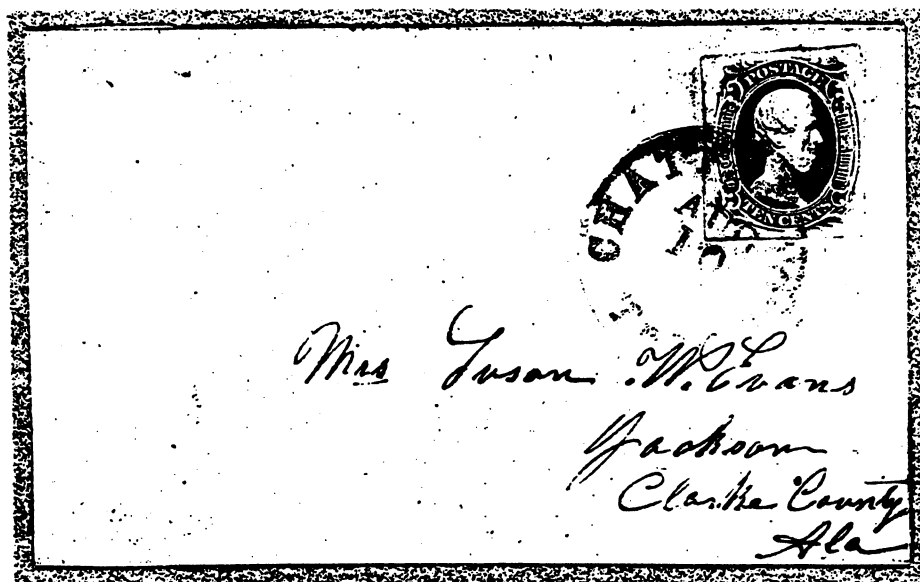 POSTAGE
TEN CENTS
CHAT
Mrs Susan W. Evans
Jackson
Clarke County
Ala